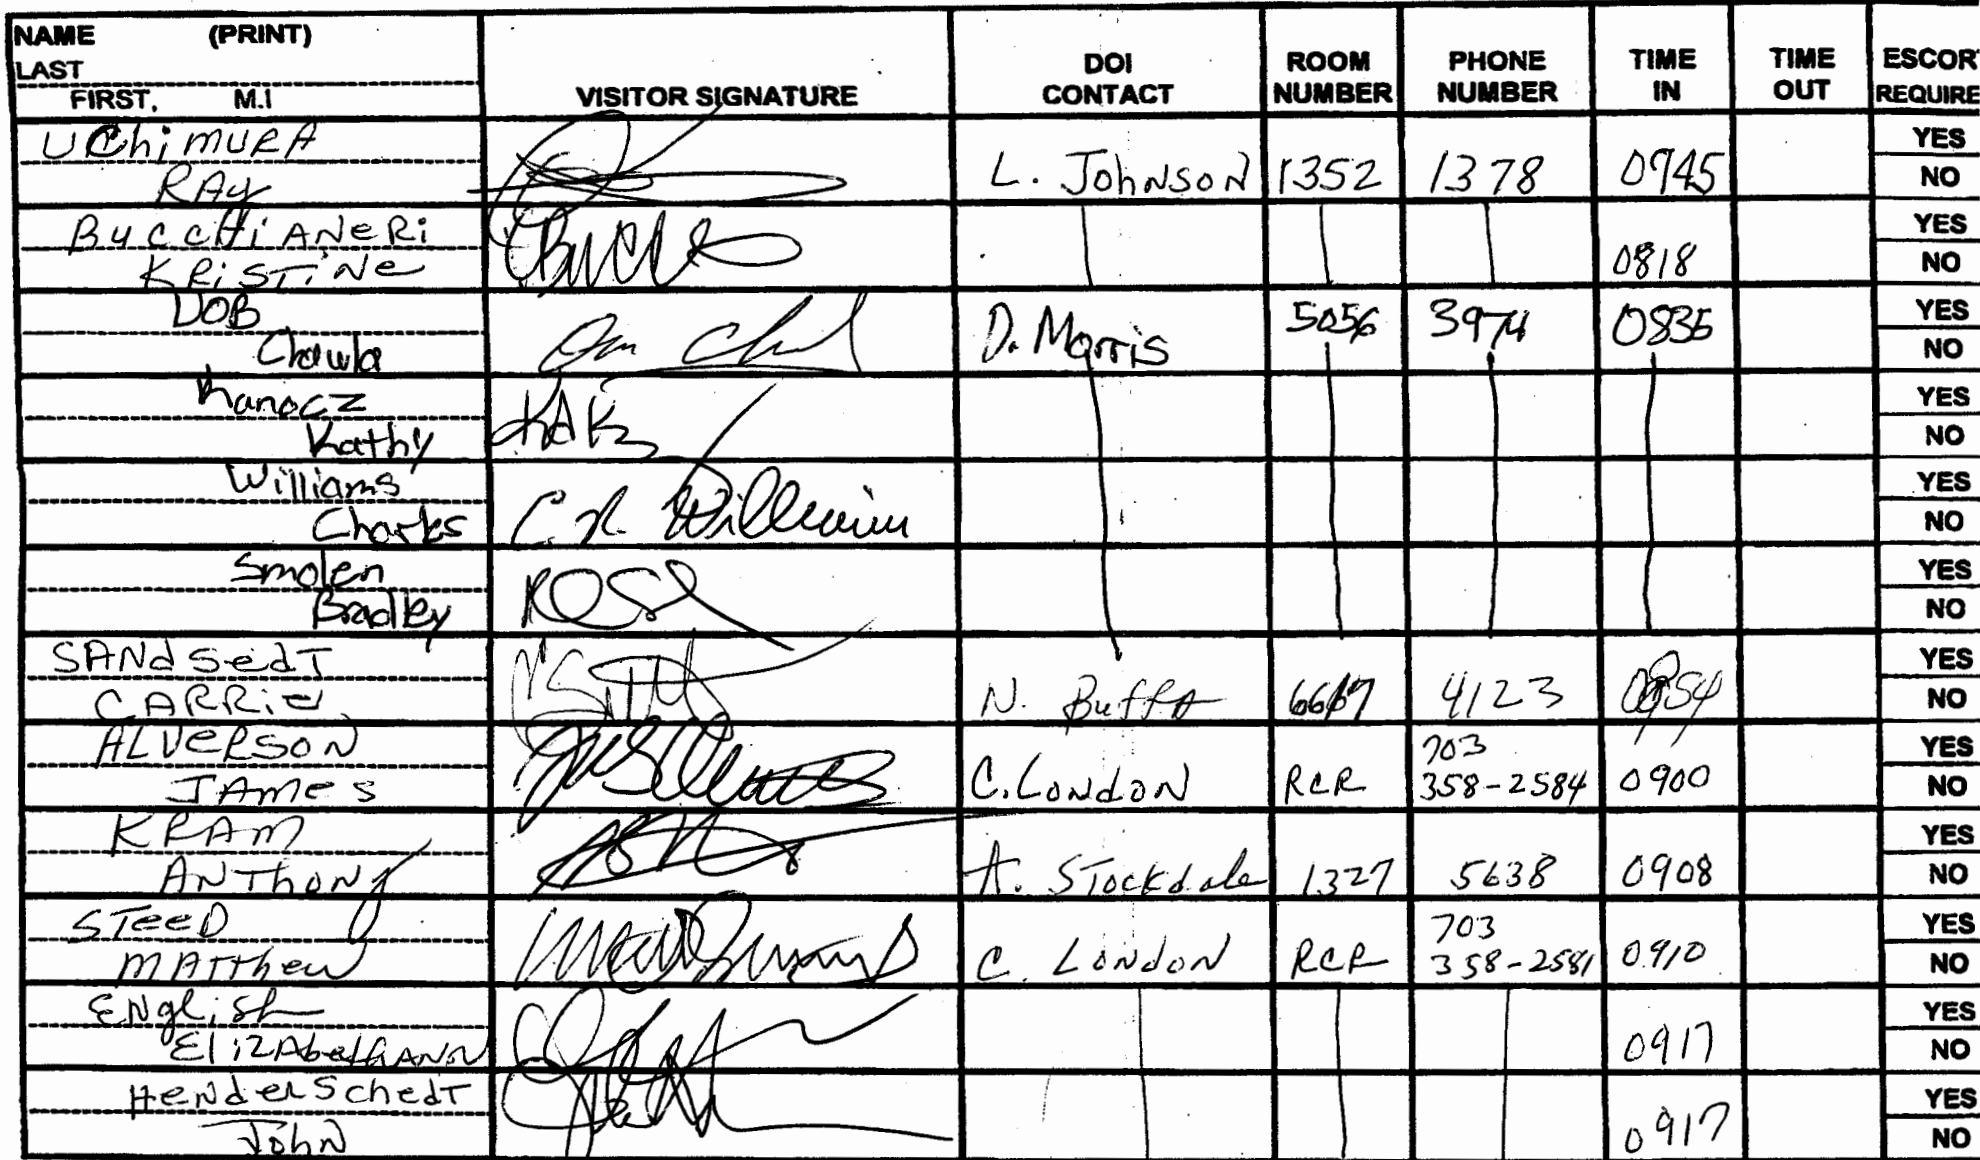 NAME (PRINT)
LAST
FIRST, M.I
VISITOR SIGNATURE
DOI CONTACT
ROOM NUMBER
PHONE NUMBER
TIME IN
TIME OUT
ESCOR REQUIRE
UChiMURA
RAy L. JOHNSON 1352 1378 0745 YES NO
BuccHiANeRi
KRiSTiNe 0818 YES NO
Chawla D. Morris 5056 3974 0835 YES NO
Kanocz
Kathy YES NO
Williams C. R. Williams
Charles YES NO
Smolen
Bradley YES NO
SANdSedT
CARRie N. BuffA 4123 YES NO
ALVeRSON 703
JAmeS C. LONdON RCR 358-2584 0900 YES NO
KRAM
ANThONy A. STockdale 1327 5638 0908 YES NO
STeeD 703
MATThew C. LONdON RCR 358-2581 0910 YES NO
ENgLiSh
EliZAbethANN 0917 YES NO
HeNdeRSchedT
JohN 0917 YES NO